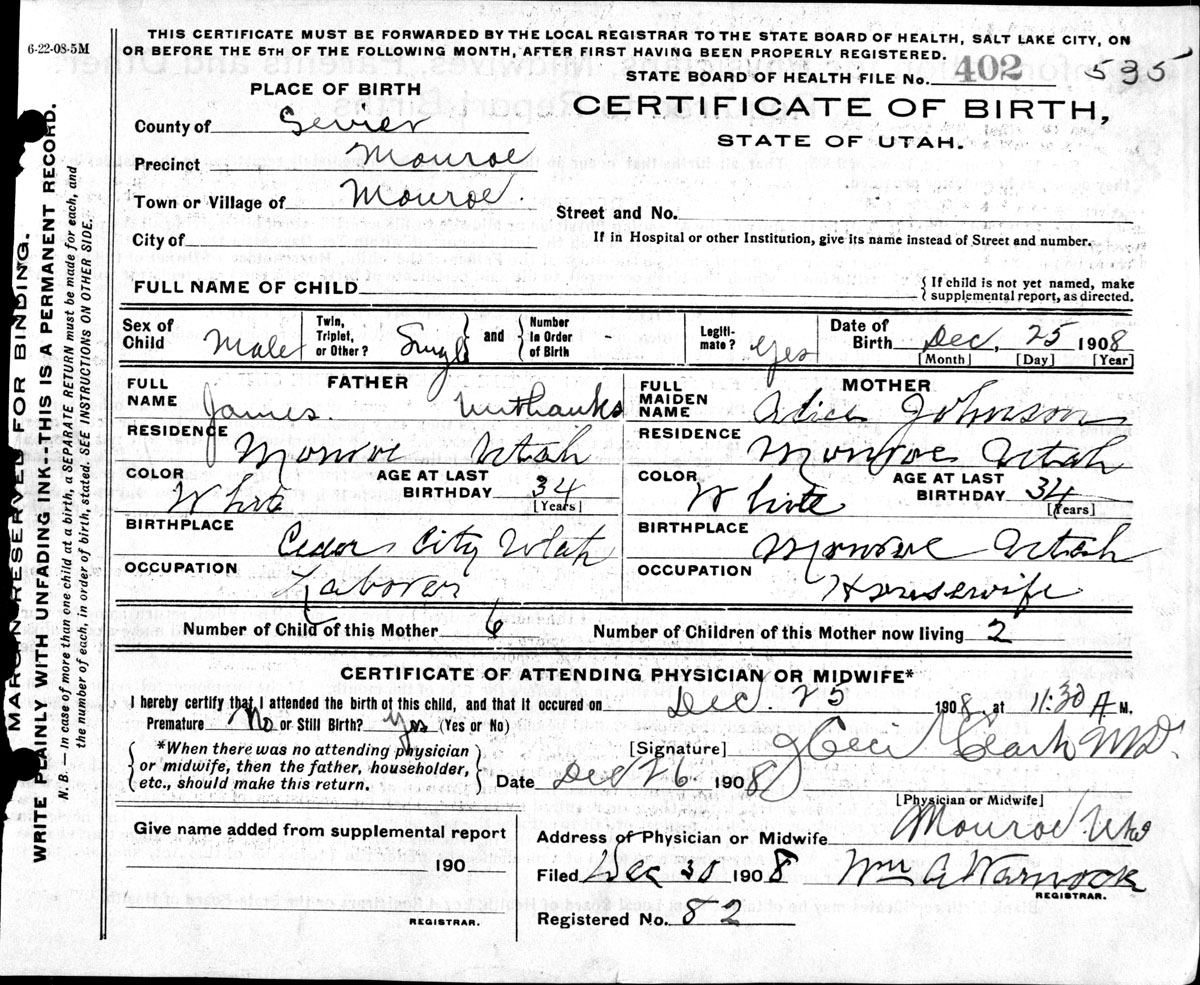 6-22-08-5M
THIS CERTIFICATE MUST BE FORWARDED BY THE LOCAL REGISTRAR TO THE STATE BOARD OF HEALTH, SALT LAKE CITY, ON
OR BEFORE THE 5TH OF THE FOLLOWING MONTH, AFTER FIRST HAVING BEEN PROPERLY REGISTERED.
STATE BOARD OF HEALTH FILE No. 402 535
PLACE OF BIRTH
CERTIFICATE OF BIRTH,
STATE OF UTAH.
County of Sevier
Precinct Monroe
Town or Village of Monroe.
Street and No.
City of
If in Hospital or other Institution, give its name instead of Street and number.
FULL NAME OF CHILD
{ If child is not yet named, make
supplemental report, as directed.
Sex of Child Male
Twin, Triplet, or Other? Single } and { Number in Order of Birth -
Legiti-mate? Yes
Date of Birth Dec, 25 1908
[Month] [Day] [Year]
FATHER
FULL NAME James. Unthanks
RESIDENCE Monroe Utah
COLOR White AGE AT LAST BIRTHDAY 34
[Years]
BIRTHPLACE Cedar City Utah
OCCUPATION Laborer
MOTHER
FULL MAIDEN NAME Alice Johnson
RESIDENCE Monroe Utah
COLOR White AGE AT LAST BIRTHDAY 34
[Years]
BIRTHPLACE Monroe Utah
OCCUPATION Housewife
Number of Child of this Mother 6 Number of Children of this Mother now living 2
CERTIFICATE OF ATTENDING PHYSICIAN OR MIDWIFE*
I hereby certify that I attended the birth of this child, and that it occured on Dec. 25 1908, at 11:30 A M.
Premature No or Still Birth? Yes (Yes or No)
{ *When there was no attending physician
or midwife, then the father, householder,
etc., should make this return. }
[Signature] Clark MD.
Date Dec 26 1908
[Physician or Midwife]
Give name added from supplemental report
190
REGISTRAR.
Address of Physician or Midwife Monroe Utah
Filed Dec 30 1908 Wm A Warnock
REGISTRAR.
Registered No. 82
MARGIN RESERVED FOR BINDING.
WRITE PLAINLY WITH UNFADING INK---THIS IS A PERMANENT RECORD.
N. B. — In case of more than one child at a birth, a SEPARATE RETURN must be made for each, and
the number of each, in order of birth, stated. SEE INSTRUCTIONS ON OTHER SIDE.